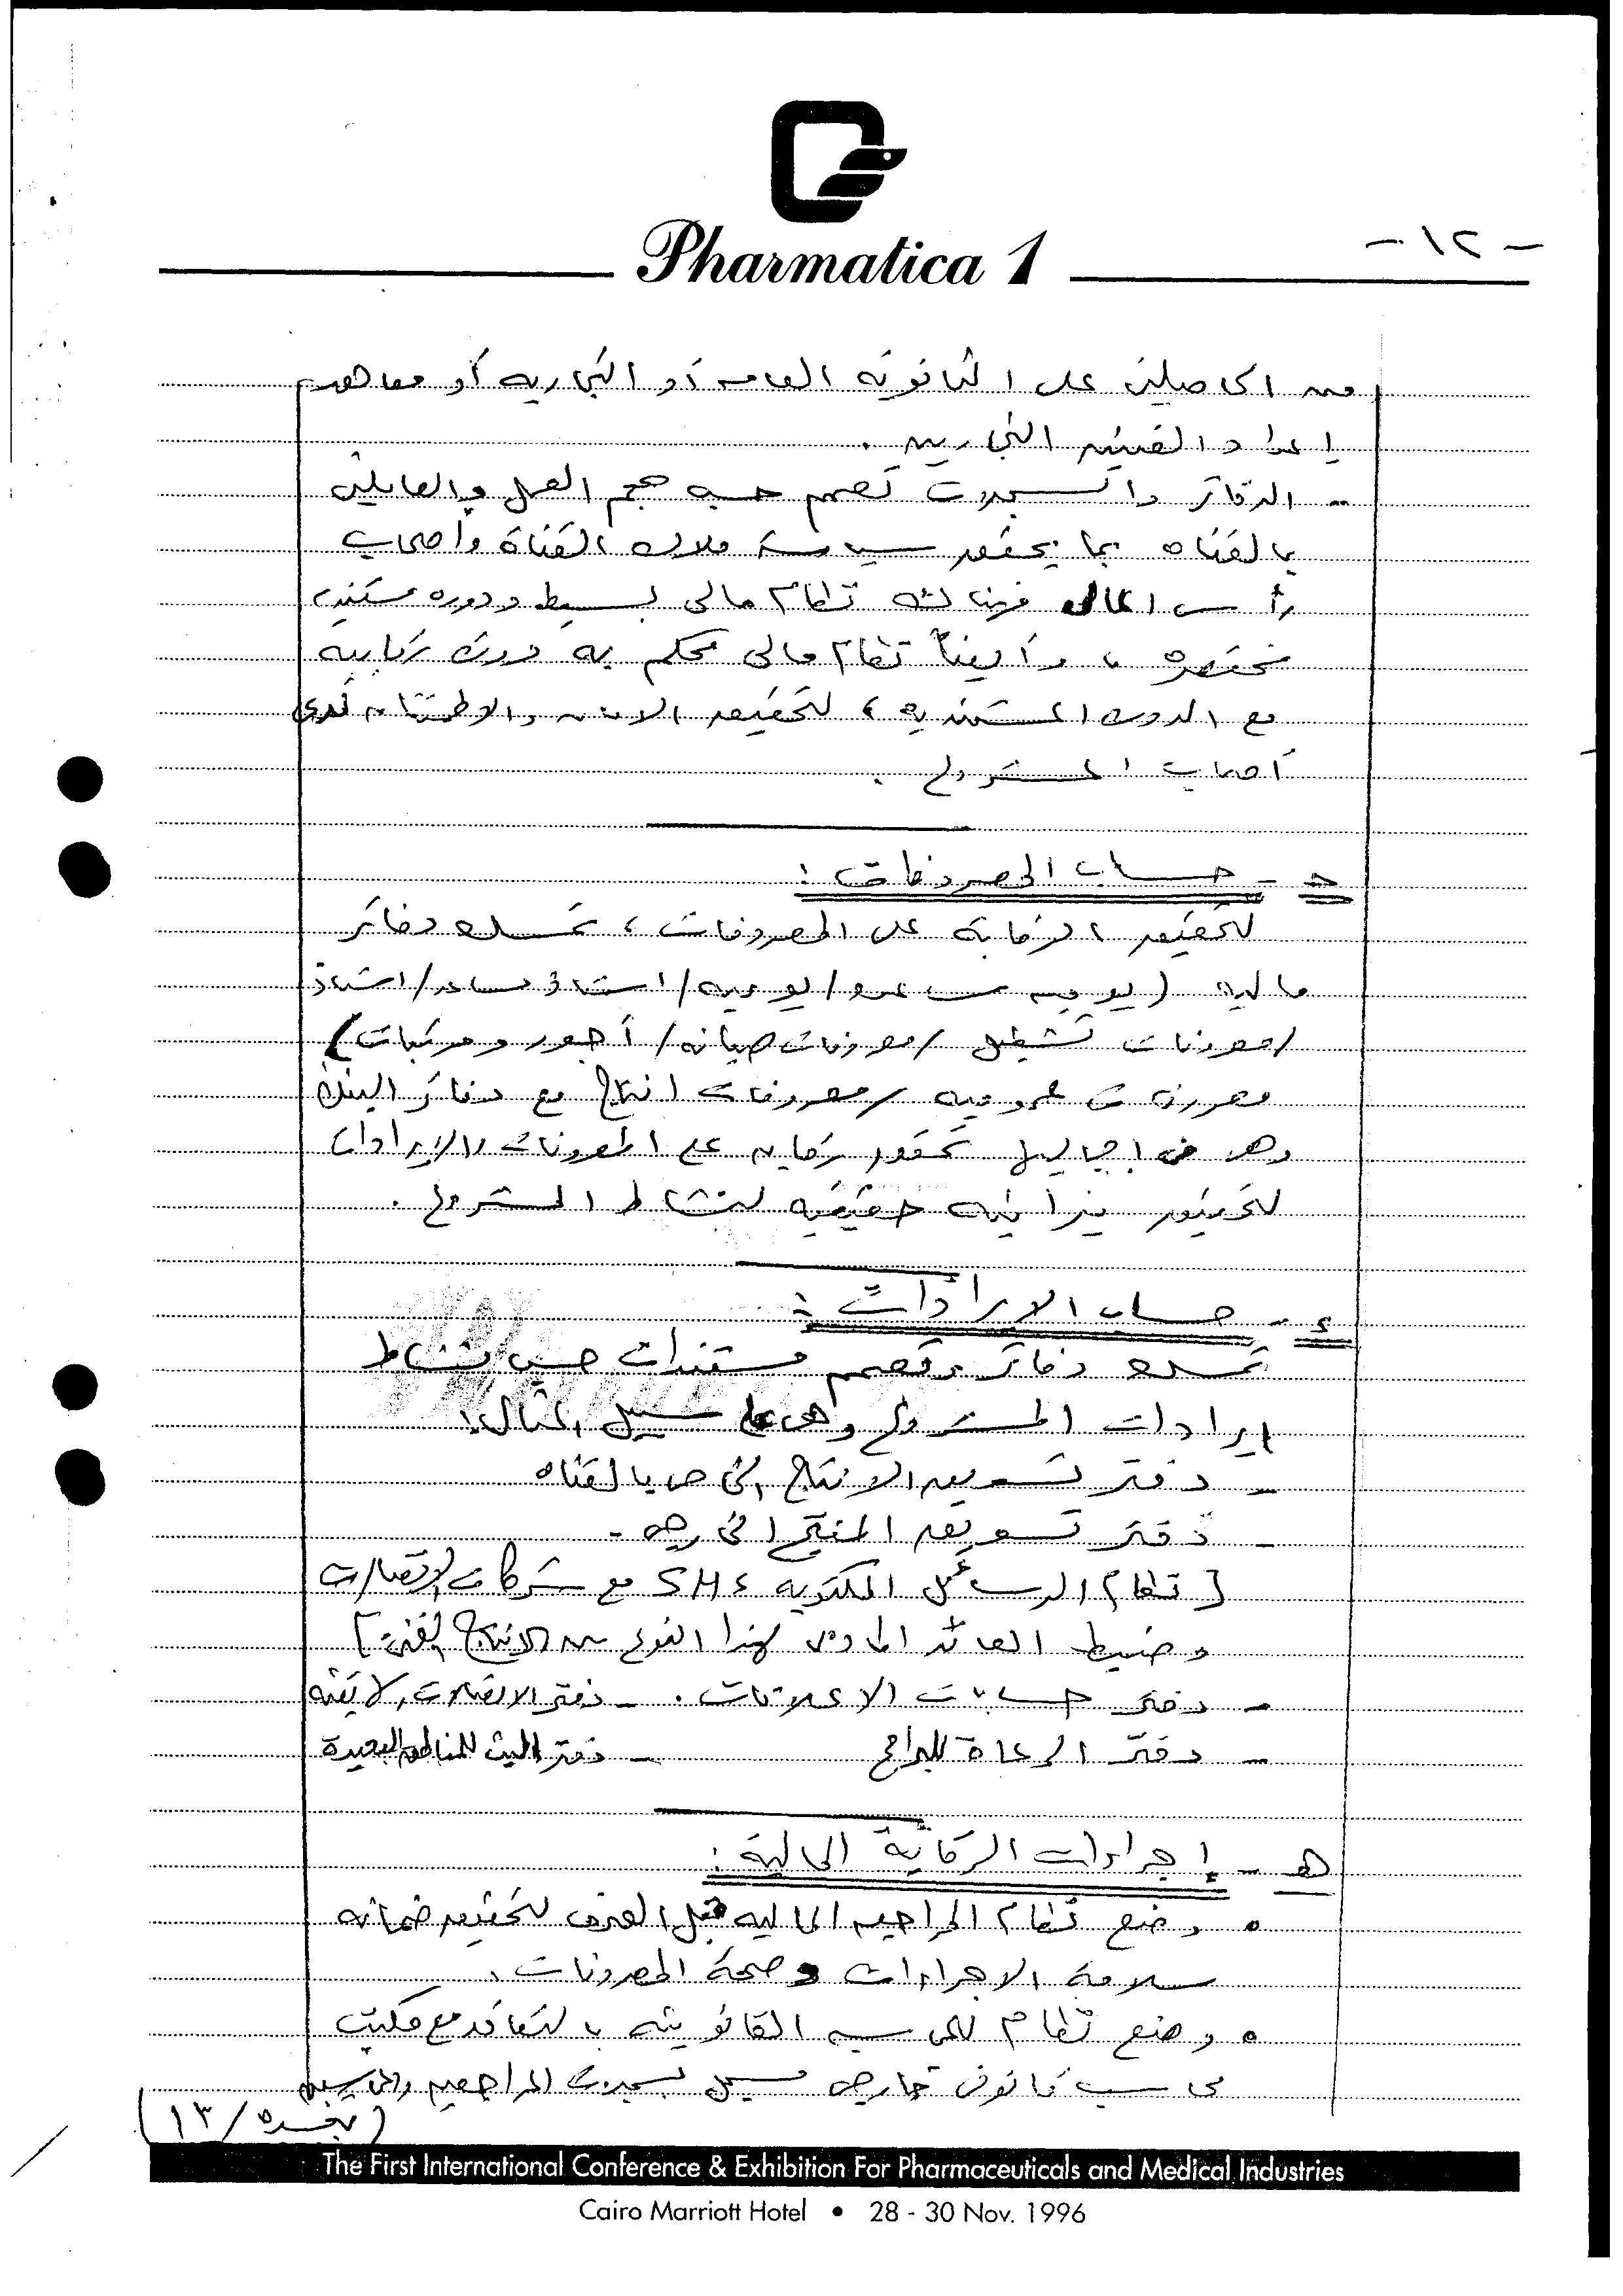 Pharmatica 1
- ١٢ -
من الحاصلين على الثانوية العامة أو التجارية أو معاهد
إعداد الفنيين التجارية .
- الدفاتر والسجلات تصمم حسب حجم العمل والعاملين
بالقناه بما يحقق سياسة ملاك القناة وأصحاب
رأس المال فهناك نظام مالى بسيط ودوره مستنديه
مختصره ، وأيضاً نظام مالى محكم به دورة رقابيه
مع الدورة المستنديه ، لتحقيق الامان والاطمئنان لدى
أصحاب المشروع .
حـ - حساب المصروفات :
لتحقيق الرقابة على المصروفات ، تمسك دفاتر
ماليه ( يوميه / استاذ مساعد / استاذ
/ مصروفات تشغيل / مصروفات صيانه / أجور ومرتبات )
مصروفات عموميه / مصروفات انتاج مع دفاتر البنك
وهى فى اجماليها تحقق رقابه على المصروفات والايرادات
لتحقيق ميزانيه حقيقيه لنشاط المشروع .
ء - حساب الايرادات :
تمسك دفاتر وتصمم مستندات حسب نشاط
إيرادات المشروع وهى على سبيل المثال :
- دفتر تسويق الانتاج الخاص بالقناه
- دفتر تسويق المنتج الخارجى -
[ نظام الرسائل SMS مع شركات الاتصالات
وضبط العائد المادى لهذا النوع من الانتاج الفنى ]
- دفتر حسابات الاعلانات . - دفتر الاتصالات
- دفتر الرعاة للبرامج - دفتر البث للمناطق البعيدة
هـ - إجراءات الرقابة المالية :
• وضع نظام المراجعه الماليه قبل الصرف لتحقيق ضمانه
سلامة الاجراءات وصحة المصروفات .
• وضع نظام للمحاسبه القانونيه بالتعاقد مع مكتب
محاسب قانونى خارجى مسجل بسجلات المراجعين والمحاسبين
( بعده / ١٣ )
The First International Conference & Exhibition For Pharmaceuticals and Medical Industries
Cairo Marriott Hotel • 28 - 30 Nov. 1996